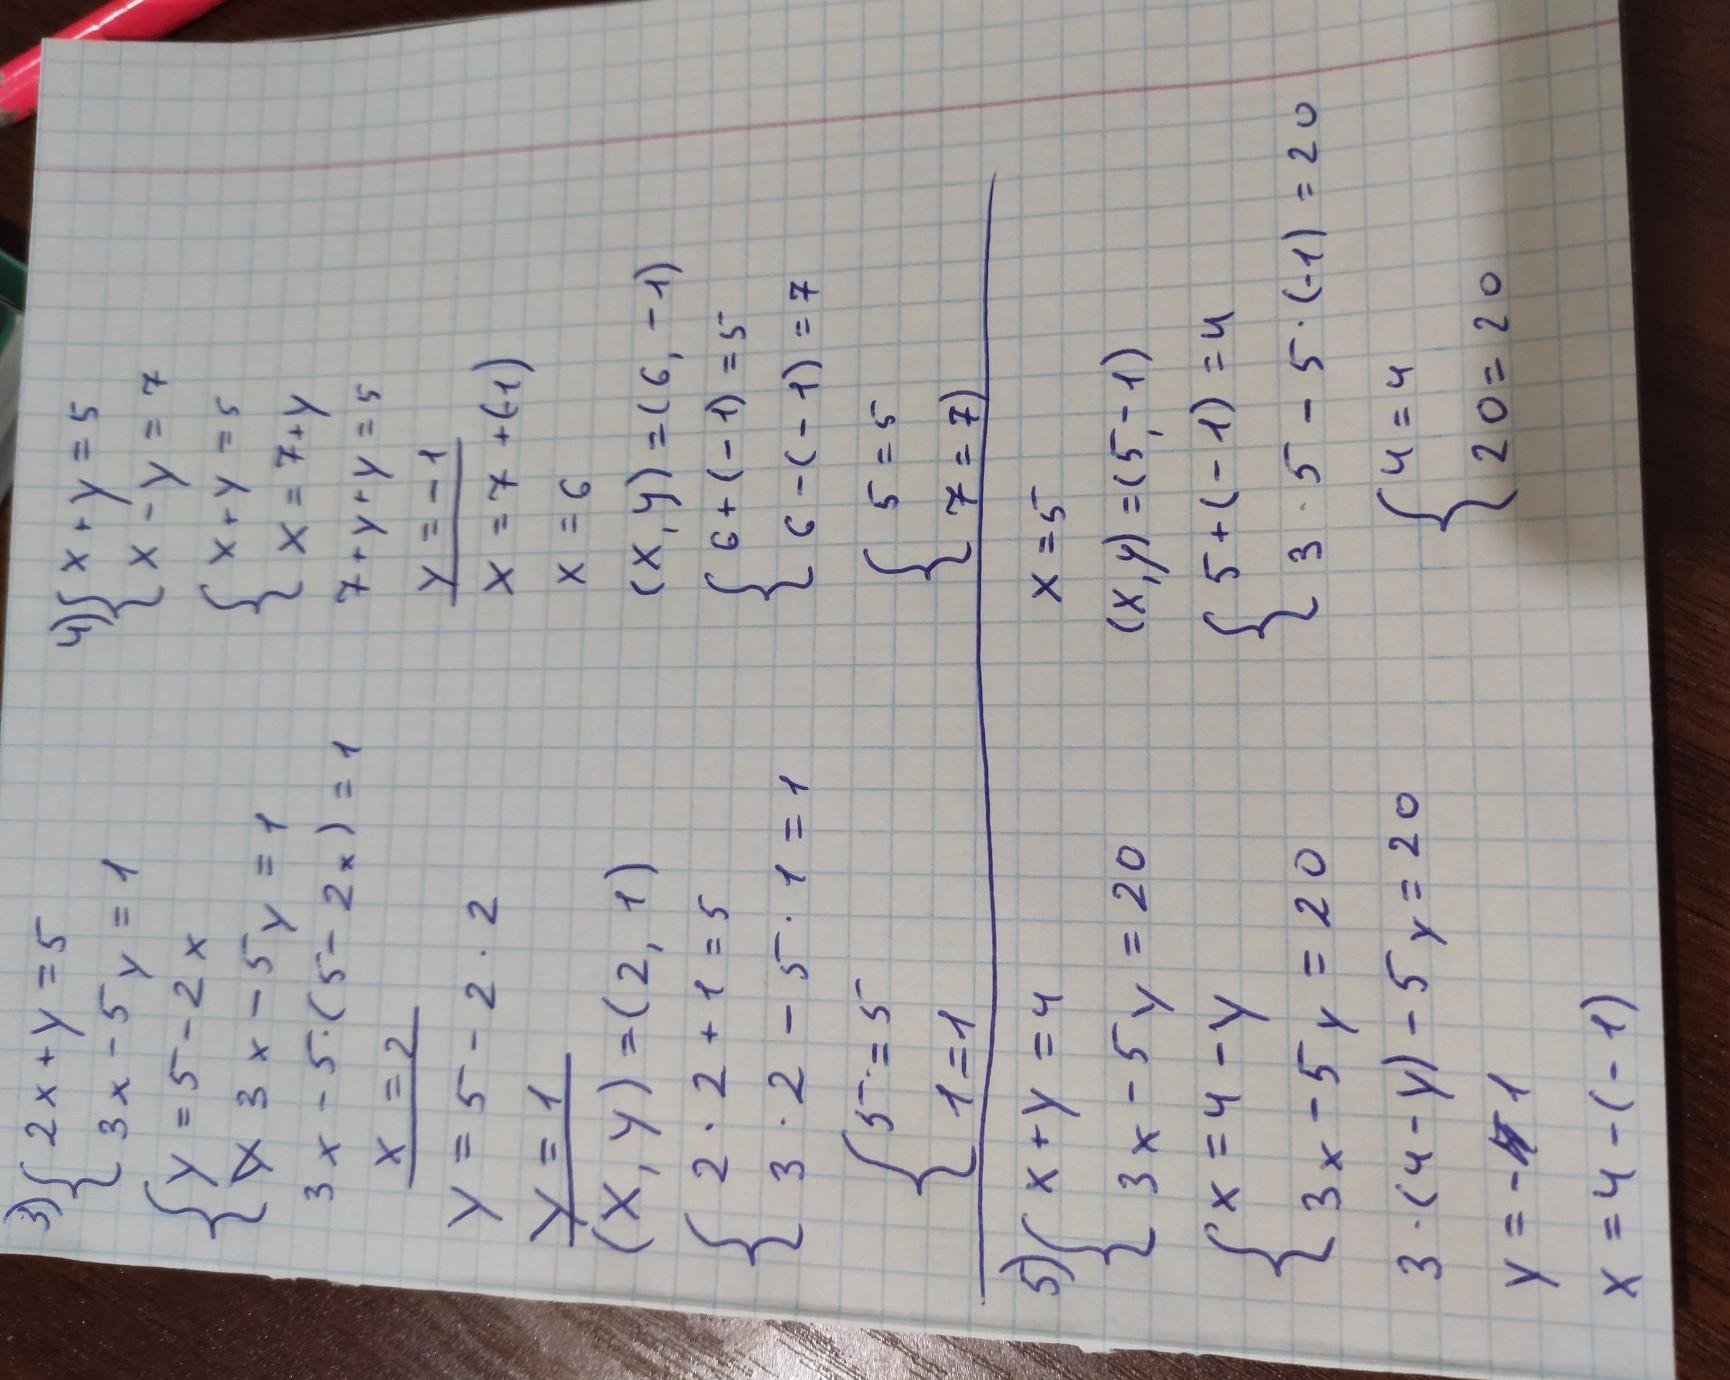 3) { 2x + y = 5
3x - 5y = 1
{ y = 5 - 2x
3x - 5y = 1
3x - 5·(5 - 2x) = 1
x = 2
y = 5 - 2·2
y = 1
(x, y) = (2, 1)
{ 2·2 + 1 = 5
3·2 - 5·1 = 1
{ 5 = 5
1 = 1
4) { x + y = 5
x - y = 7
{ x + y = 5
x = 7 + y
7 + y + y = 5
y = -1
x = 7 + (-1)
x = 6
(x, y) = (6, -1)
{ 6 + (-1) = 5
6 - (-1) = 7
{ 5 = 5
7 = 7)
5) { x + y = 4
3x - 5y = 20
{ x = 4 - y
3x - 5y = 20
3·(4 - y) - 5y = 20
y = -1
x = 4 - (-1)
x = 5
(x, y) = (5, -1)
{ 5 + (-1) = 4
3·5 - 5·(-1) = 20
{ 4 = 4
20 = 20